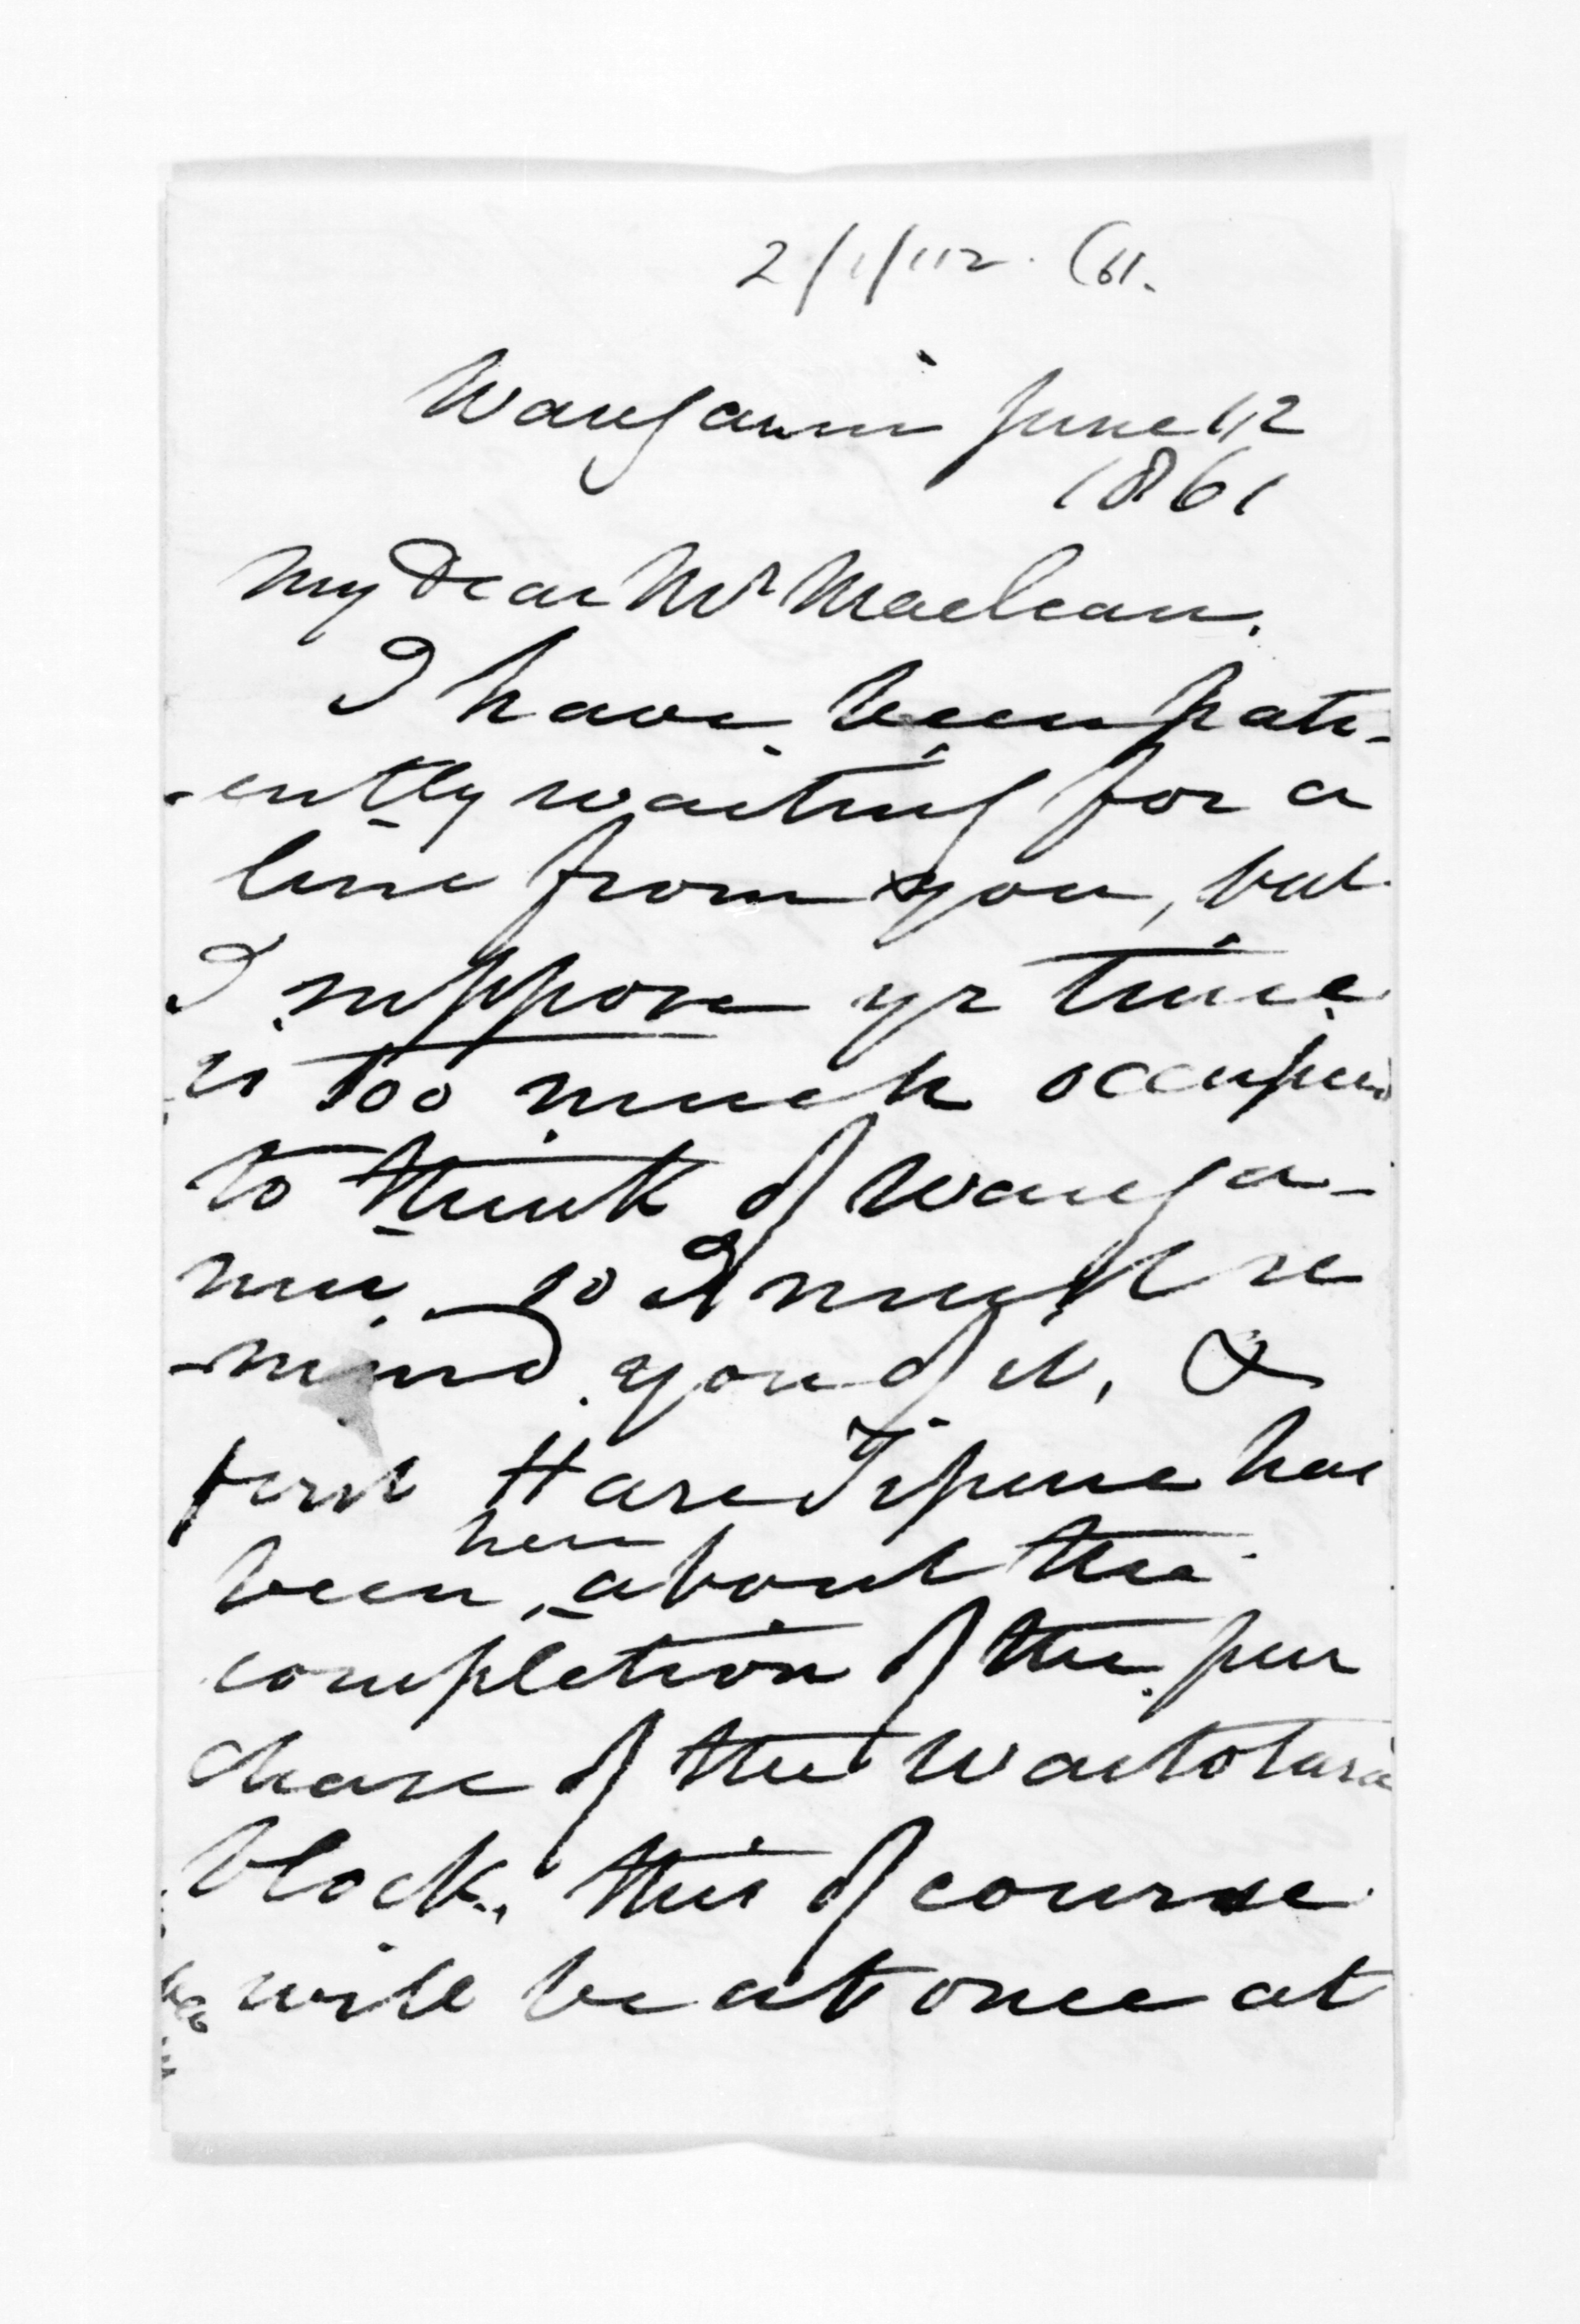 Wanganui June 12
1861
My Dear Mr Maclean.
I have been pati-
-ently waiting for a
line from you, but
I suppose yr time
is too much occupied
to think of Wanga-
nui, so I must re
-mind you of it, &
first Hare Tipene has
here
been, about the
completion of the pur
chase of the Waitotara
block, this of course
will be at once at